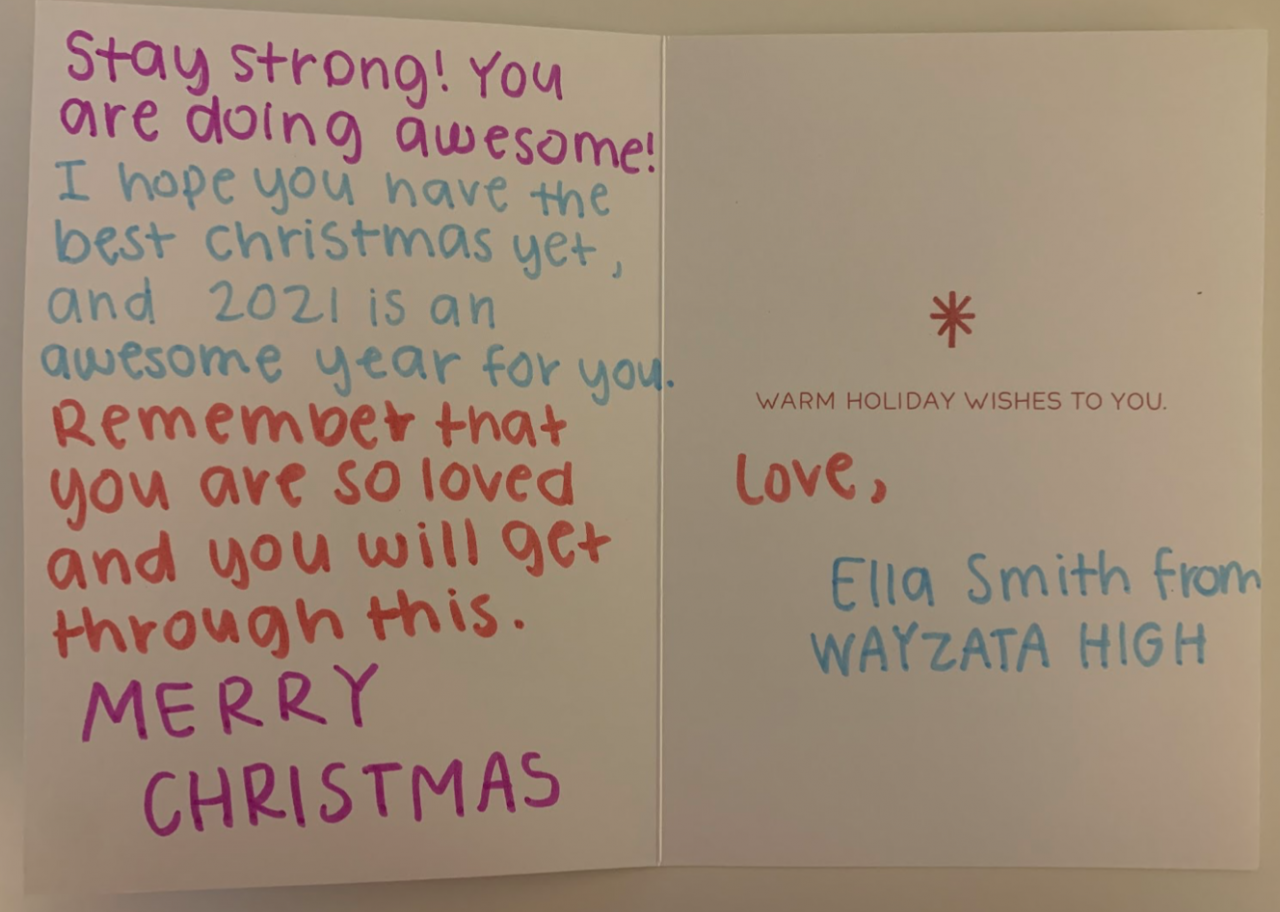 Stay strong! You
are doing awesome!
I hope you have the
best christmas yet,
and 2021 is an
awesome year for you.
Remember that
you are so loved
and you will get
through this.
MERRY
CHRISTMAS
WARM HOLIDAY WISHES TO YOU.
Love,
Ella Smith from
WAYZATA HIGH